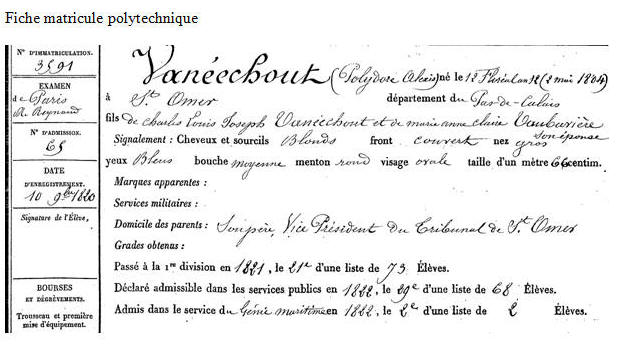 Fiche matricule polytechnique
N° D'IMMATRICULATION.
3591
EXAMEN
de Paris
M. Reynaud
N° D'ADMISSION.
65
DATE
D'ENREGISTREMENT.
10 9bre 1820
Signature de l'Élève,
BOURSES
ET DÉGRÈVEMENTS.
Trousseau et première
mise d'équipement.
Vanéechout (Polydore Alexis) né le 12 Floréal an 12 (2 mai 1804)
à St. Omer département du Pas-de-Calais
fils de Charles Louis Joseph Vanéechout et de marie anne claire Vauburière
son épouse
Signalement : Cheveux et sourcils Blonds front couvert nez gros
yeux Bleus bouche moyenne menton rond visage ovale taille d'un mètre 66 centim.
Marques apparentes :
Services militaires :
Domicile des parents : Son père, Vice Président du Tribunal de St. Omer
Grades obtenus :
Passé à la 1re division en 1821, le 21e d'une liste de 73 Élèves.
Déclaré admissible dans les services publics en 1822, le 29e d'une liste de 68 Élèves.
Admis dans le service du Génie maritime en 1822, le 2e d'une liste de 2 Élèves.